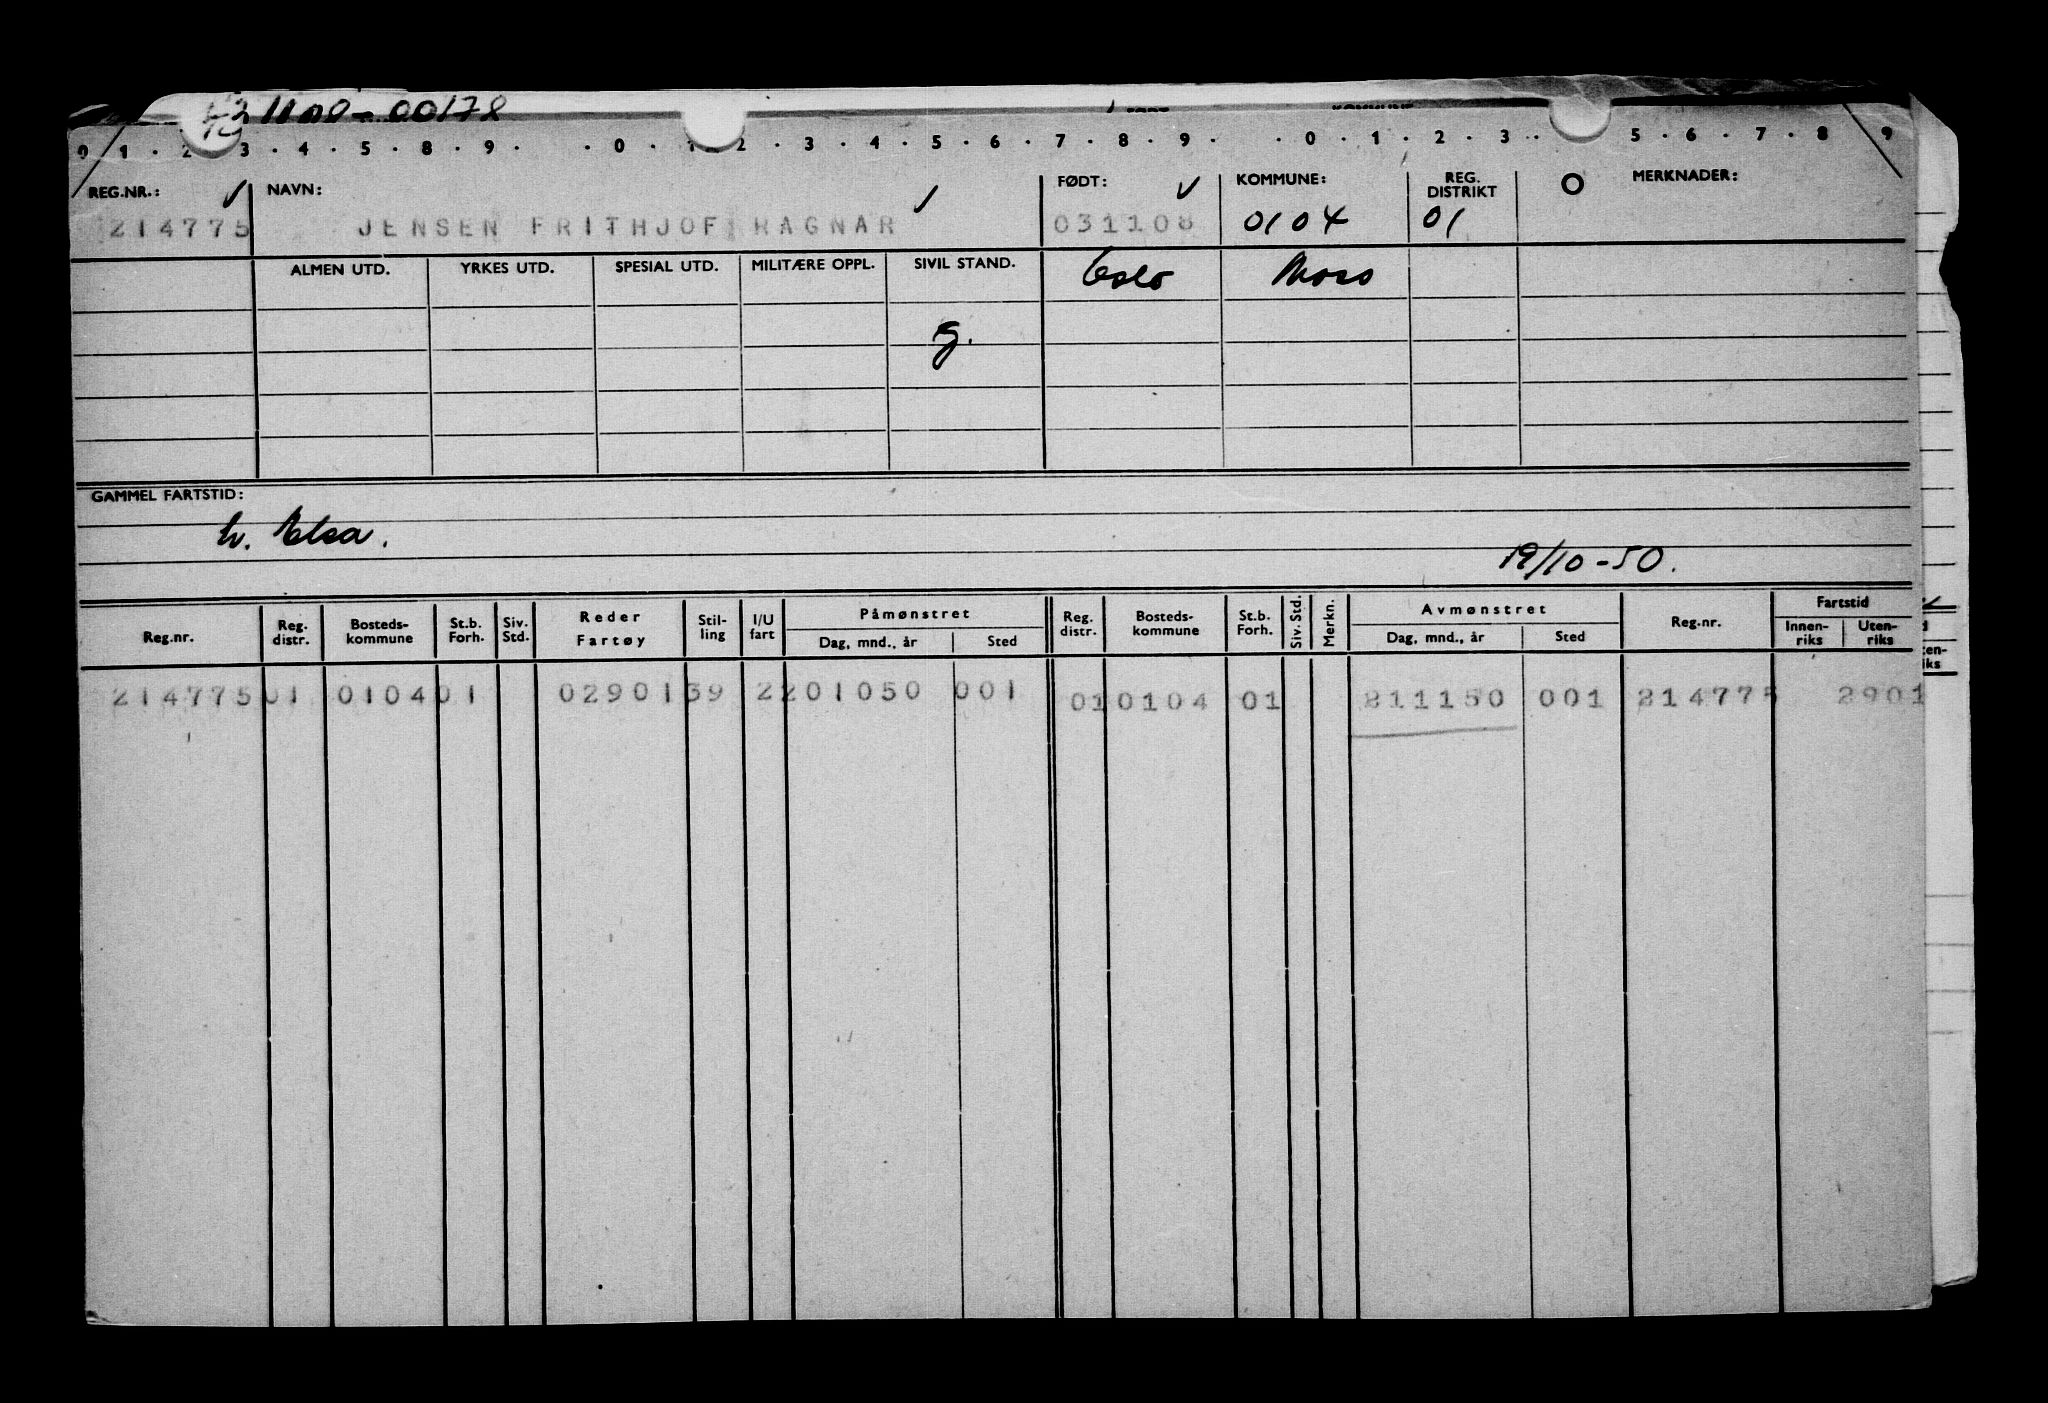 1108-00178
0 1 . 2 3 . 4 . 5 . 8 . 9 . . 0 . 1 2 . 3 . 4 . 5 . 6 . 7 . 8 . 9 . . 0 . 1 . 2 . 3 . . 5 . 6 . 7 . 8 9
REG.NR.: NAVN: FØDT: KOMMUNE: REG. DISTRIKT MERKNADER:
214775 JENSEN FRITHJOF RAGNAR 031108 0104 01
ALMEN UTD. YRKES UTD. SPESIAL UTD. MILITÆRE OPPL. SIVIL STAND. Oslo Moss
g.
GAMMEL FARTSTID:
h. Elsa.
19/10-50.
Reg.nr. Reg. distr. Bosteds-kommune St.b. Forh. Siv. Std. Reder Fartøy Stil-ling I/U fart Påmønstret Dag, mnd., år Sted Reg. distr. Bosteds-kommune St.b. Forh. Siv. Std. Merkn. Avmønstret Dag, mnd., år Sted Reg.nr. Fartstid Innen-riks Uten-riks
214775 01 0104 01 02901 39 2 201050 001 01 0104 01 211150 001 214775 2901